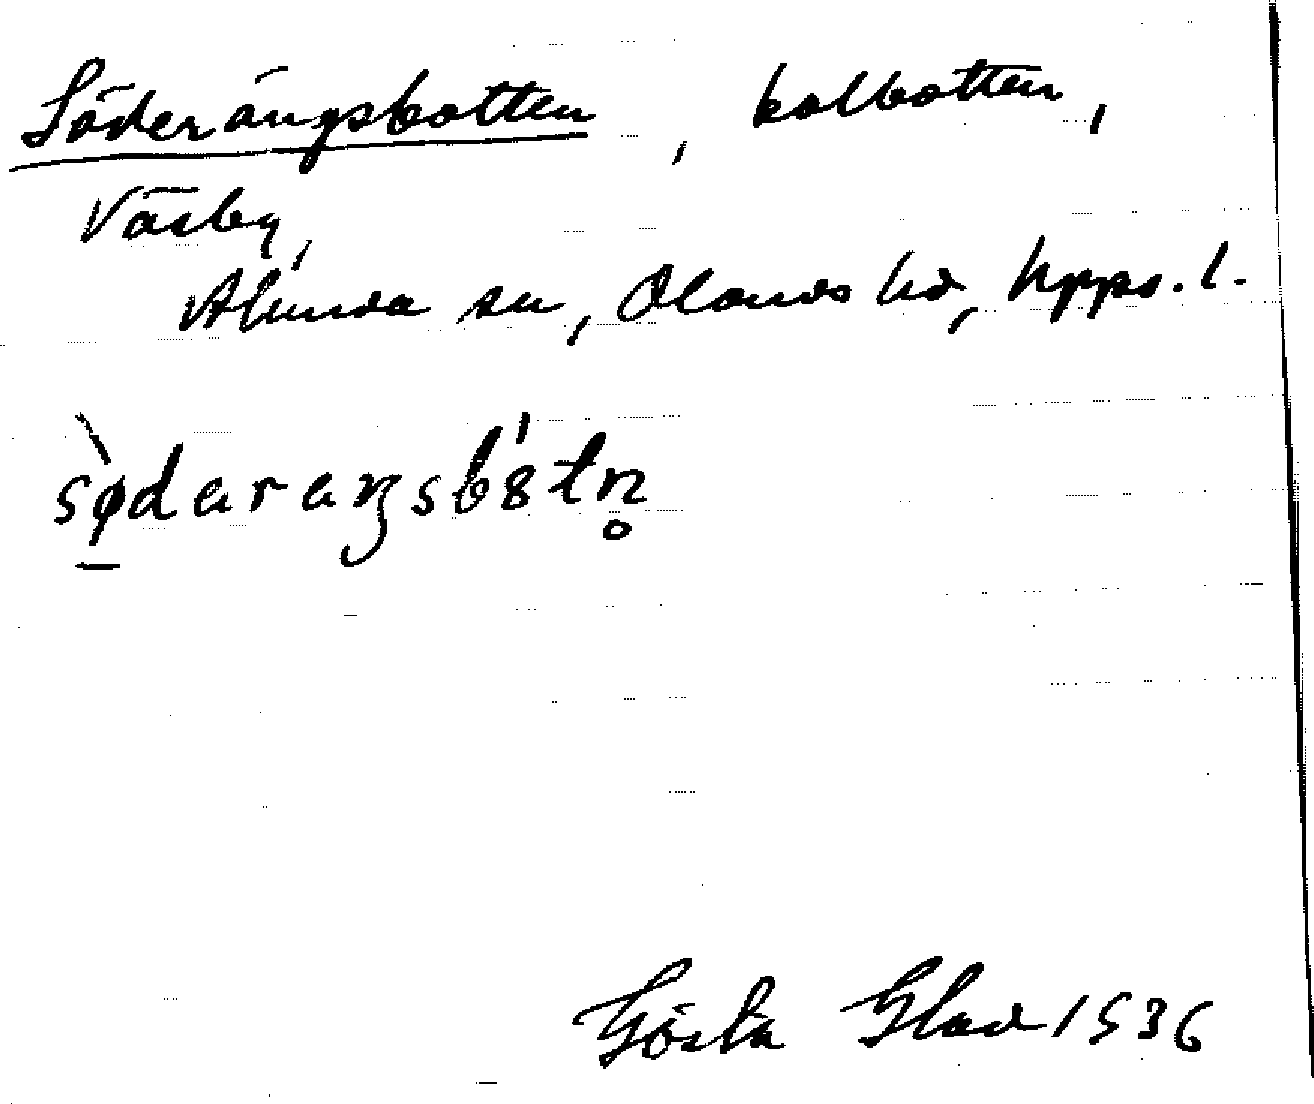 Söderängsbotten, kolbotten,
Väsby,
Alunda sn, Olands hd, Upps. l.
sø̠̀daraŋsbȣ́tn̥
Gösta Glad 1936